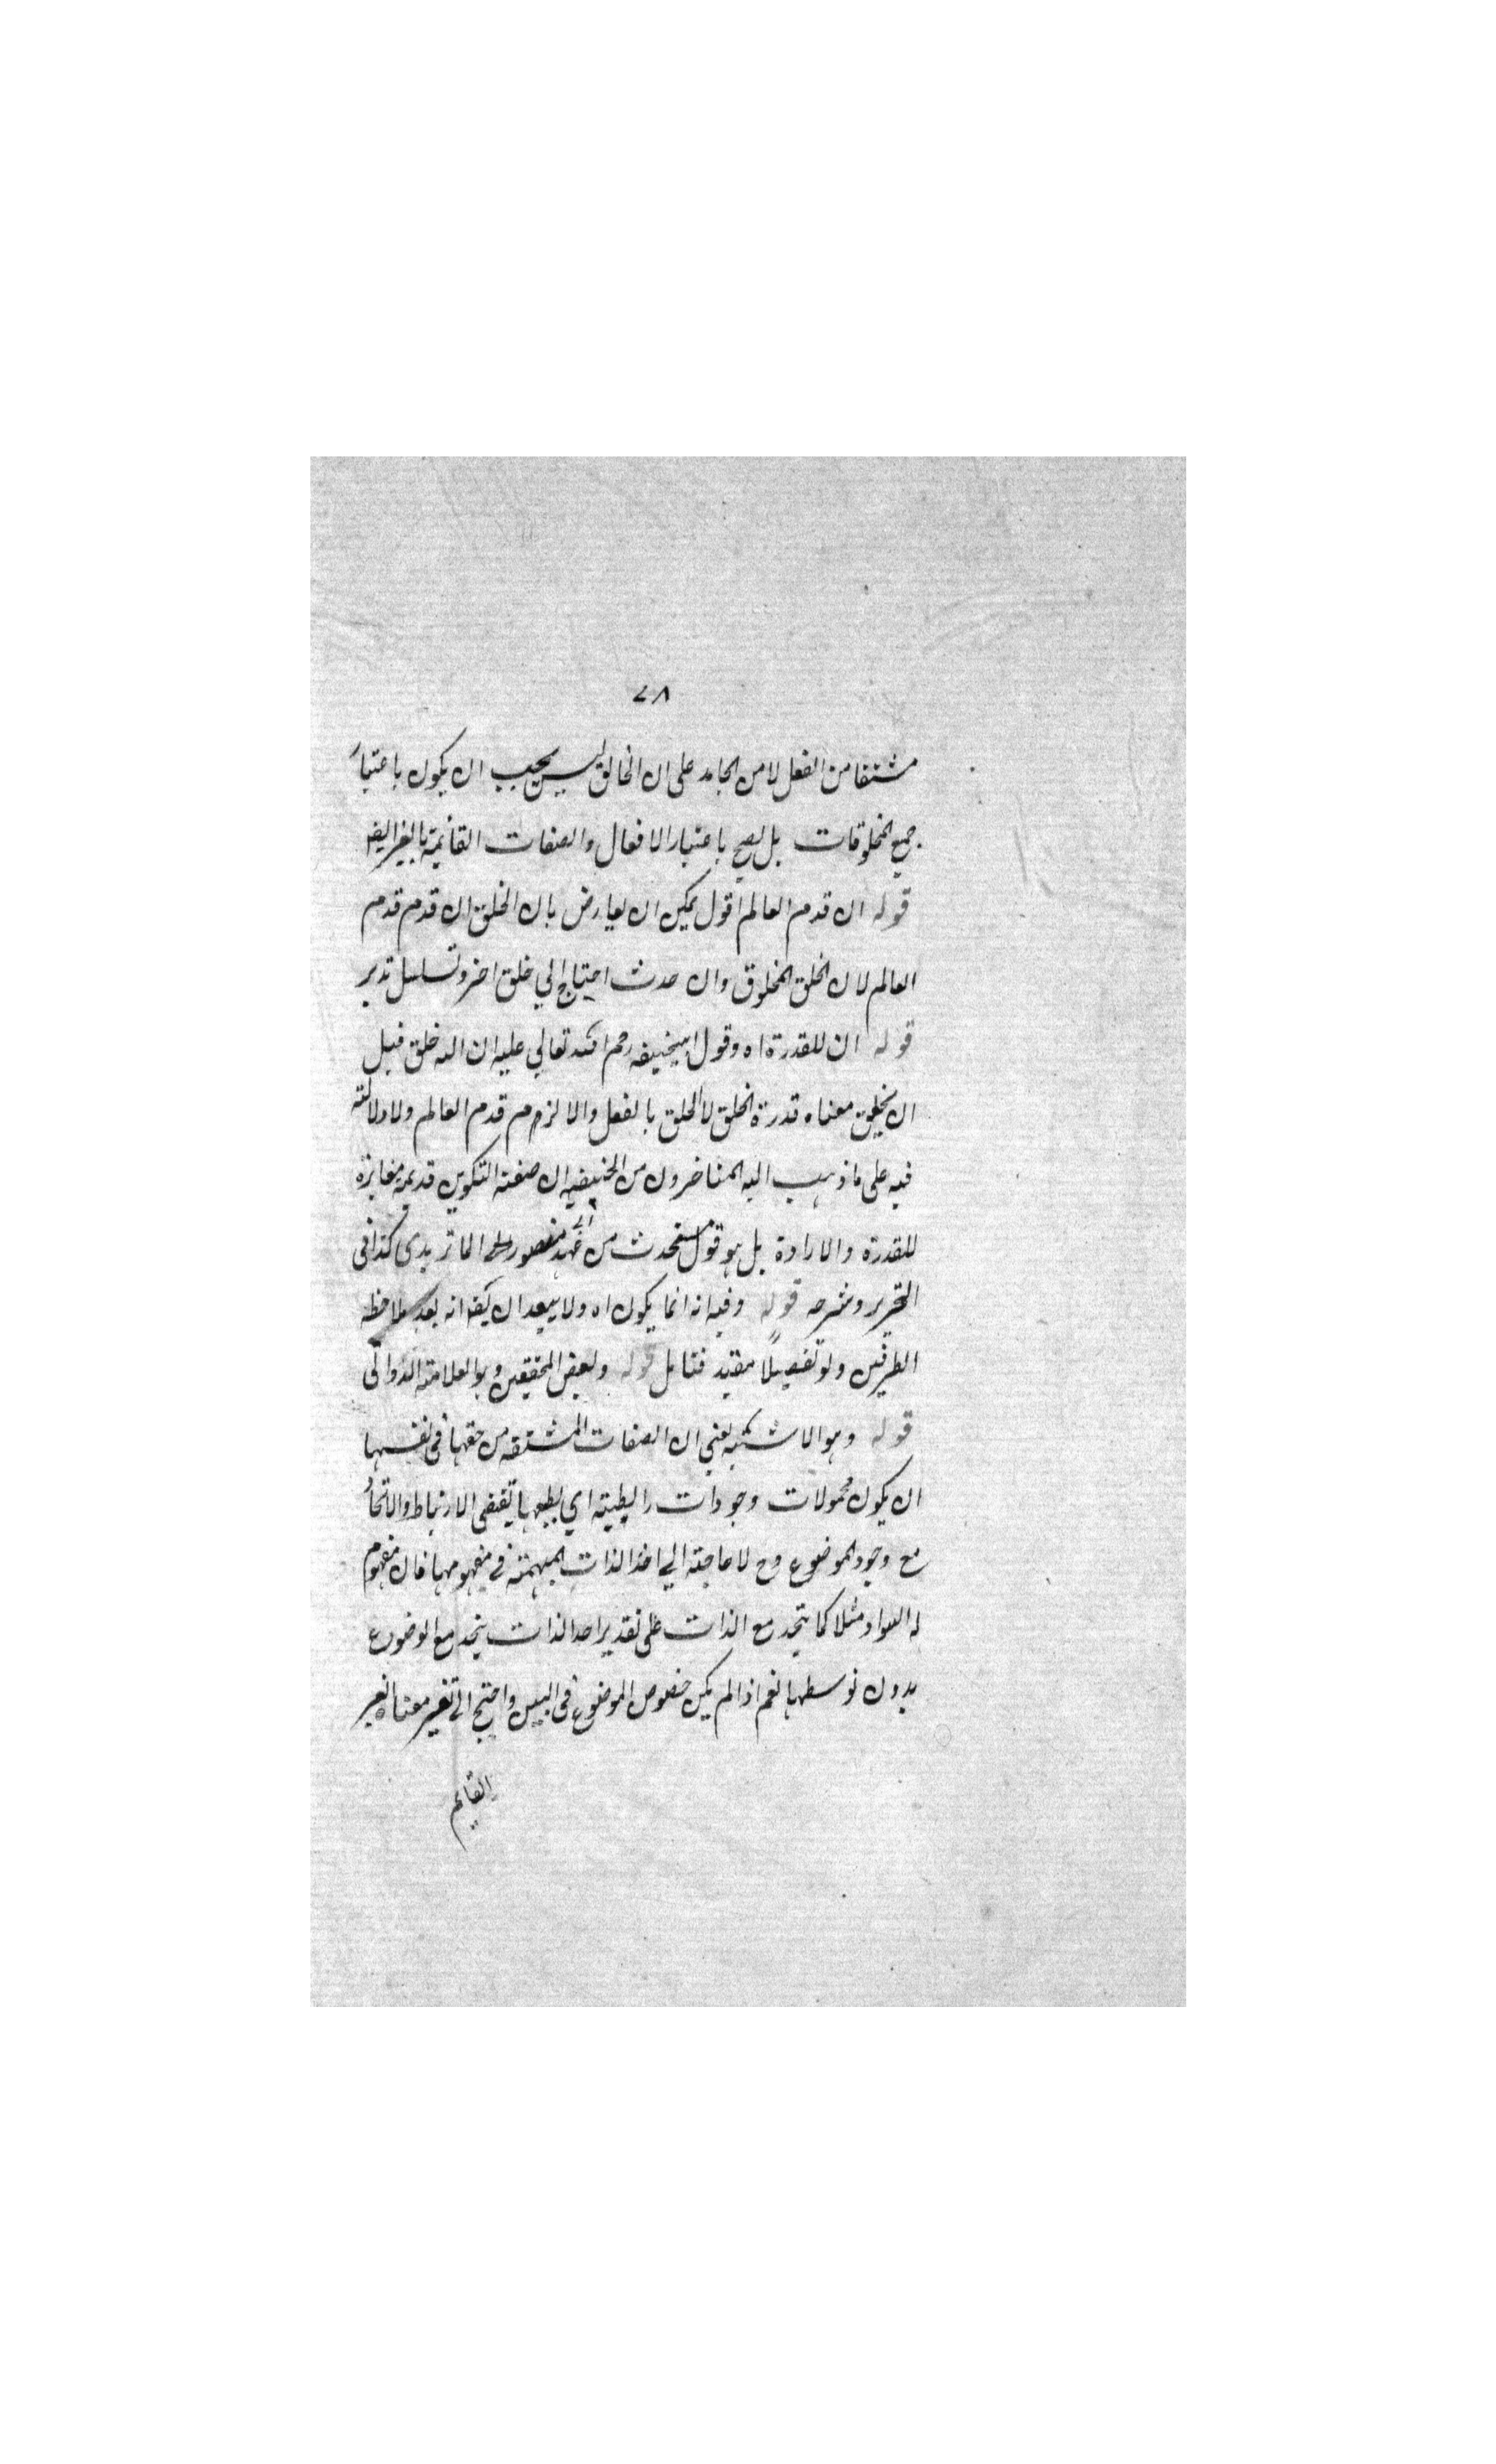 ٧٨
مشتقا من الفعل لا من الجامد على ان الخالق ليس يجب ان يكون باعتبار
جميع المخلوقات بل يصح باعتبار الافعال والصفات القائمة بالغير ايضا
قوله ان قدم العالم اقول يمكن ان يعارض بان الخلق ان قدم قدم
العالم لان الخلق المخلوق وان حدث احتياج الي خلق اخر وتسلسل تدبر
قوله ان للقدرة اه وقول ابيحنيفه رحم الله تعالي عليه ان الله خلق قبل
ان يخلق معناه قدرة الخلق لا الخلق بالفعل والا لزم قدم العالم ولا دلالته
فيه على ما ذهب اليه المتاخرون من الحنيفيه ان صفته التكوين قديمه مغايرة
للقدرة والارادة بل هو قول مستحدث من عهد ابي منصور الماتريدى كذا فى
التحرير وشرحه قوله وفيه انه انما يكون اه ولا يبعد ان يكفى انه بعد ملاحظه
الطرفين ولو تفصيلًا مقيد فتامل قوله وبعض المحققين وهو العلامته الدوانى
قوله وهو الاشبه يعني ان الصفات المشتقه من حقها فى نفسها
ان يكون محمولات وجودات رابطيته اي بطبعها تقتضى الارتباط والاتحاد
مع وجود الموضوع وح لا حاجته الي اخذ الذات المبهمته في مفهومها فان مفهوم
له السواد مثلا كما يتحد مع الذات على تقدير اخذ الذات يتحد مع الموضوع
بدون توسطها نعم اذا لم يكن خصوص الموضوع فى البين واحتج الى تفسير معناه يعبر
القايم